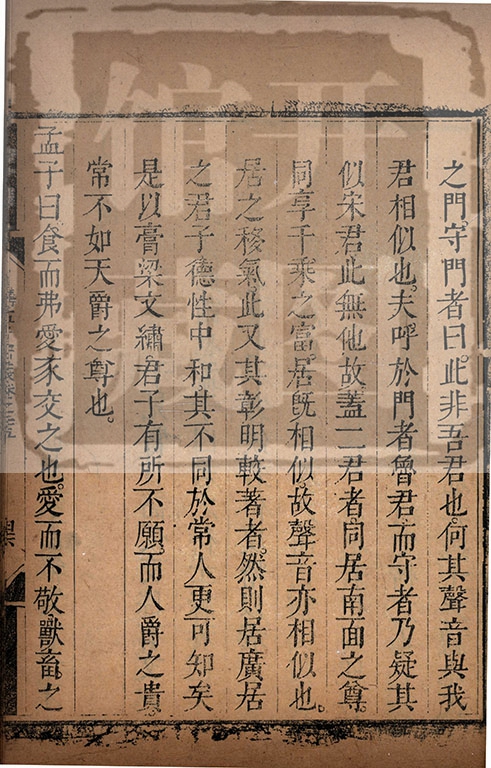 之門守門者曰此非吾君也何其聲音與我
君相似也夫呼於門者魯君而守者乃疑其
似宋君此無他故蓋二君者同居南面之尊
同享千乘之富居旣相似故聲音亦相似也
居之移氣此又其彰明較著者然則居廣居
之君子德性中和其不同於常人更可知矣
是以膏梁文繡君子有所不願而人爵之貴
常不如天爵之尊也
孟子曰食而弗愛豕交之也愛而不敬獸畜之